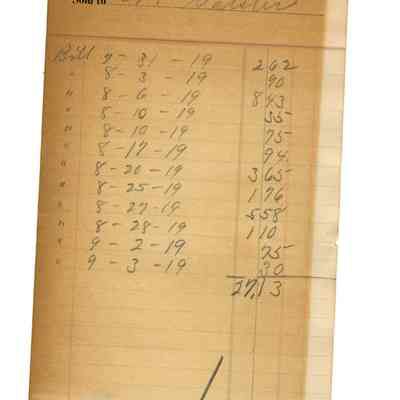 Sold to
Bill 7 - 31 - 19 2 62
" 8 - 3 - 19 90
" 8 - 6 - 19 8 43
" 8 - 10 - 19 35
" 8 - 10 - 19 75
" 8 - 17 - 19 94
" 8 - 20 - 19 3 65
" 8 - 25 - 19 1 76
" 8 - 27 - 19 5 58
" 8 - 28 - 19 1 10
" 9 - 2 - 19 75
" 9 - 3 - 19 30
27.13